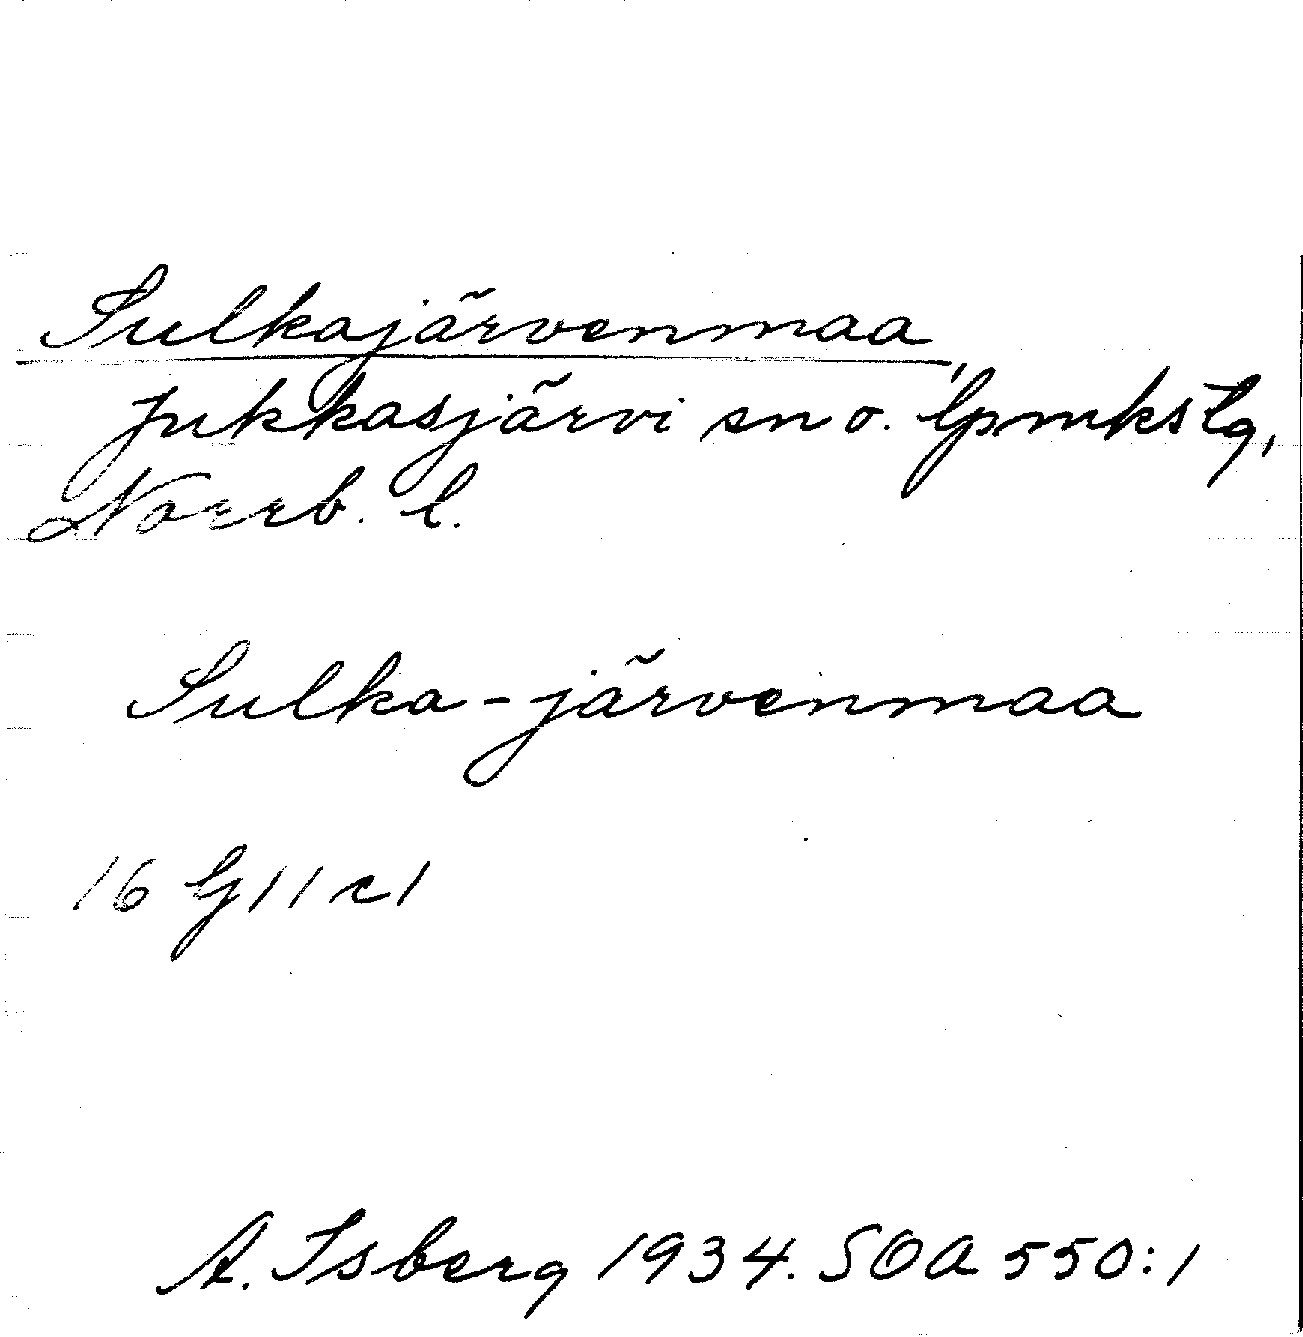 Sulkajärvenmaa,
Jukkasjärvi sn o. lpmkstg,
Norrb. l.
Sulka-järvenmaa
16 G 11 c 1
A. Isberg 1934. SOA 550:1